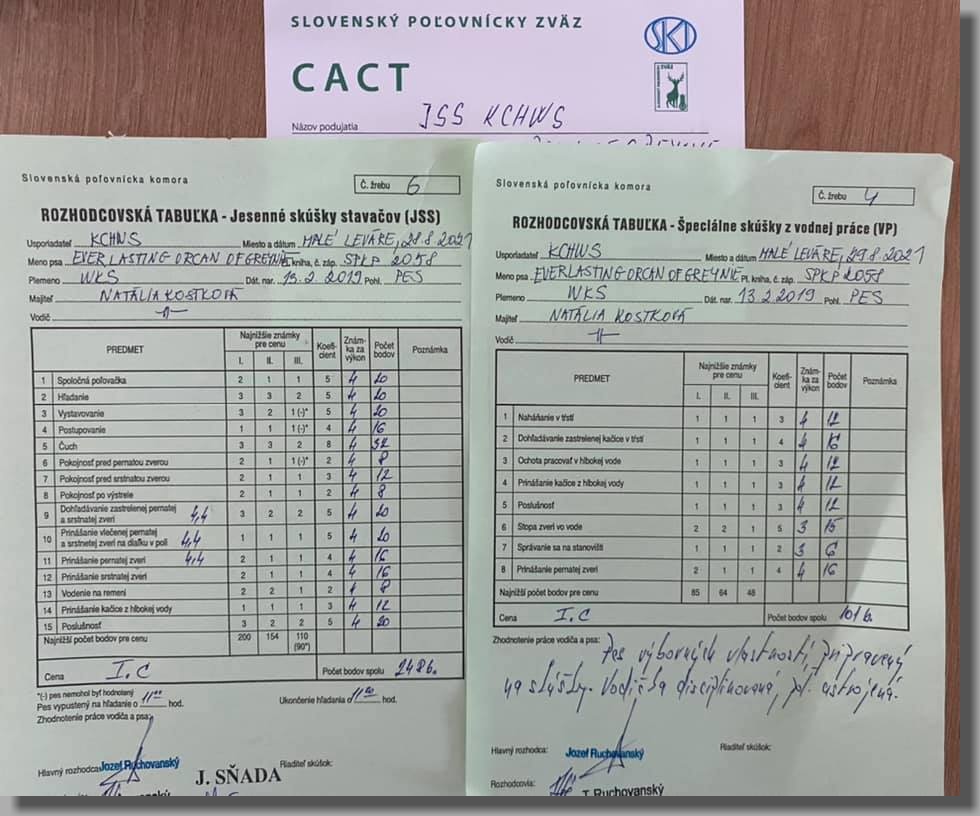 SLOVENSKÝ POĽOVNÍCKY ZVÄZ
SKJ
CACT
Názov podujatia JSS KCHWS
Slovenská poľovnícka komora
Č. žrebu 6
ROZHODCOVSKÁ TABUĽKA - Jesenné skúšky stavačov (JSS)
Usporiadateľ KCHWS Miesto a dátum MALÉ LEVÁRE, 28.8.2021
Meno psa EVERLASTING ORCAN OF GREYNIE Pl. kniha, č. záp. SPKP 2058
Plemeno WKS Dát. nar. 13.2.2019 Pohl. PES
Majiteľ NATÁLIA KOSTKOVÁ
Vodič -11-
PREDMET Najnižšie známky pre cenu I. II. III. Koeficient Známka za výkon Počet bodov Poznámka
1 Spoločná poľovačka 2 1 1 5 4 20
2 Hľadanie 3 3 2 5 4 20
3 Vystavovanie 3 2 1 (-)* 5 4 20
4 Postupovanie 1 1 1 (-)* 4 4 16
5 Čuch 3 3 2 8 4 32
6 Pokojnosť pred pernatou zverou 2 1 1 (-)* 2 4 8
7 Pokojnosť pred srstnatou zverou 2 1 1 3 4 12
8 Pokojnosť po výstrele 2 1 1 2 4 8
9 Dohľadávanie zastrelenej pernatej a srstnatej zveri 4,4 3 2 2 5 4 20
10 Prinášanie vlečenej pernatej a srstnetej zveri na diaľku v poli 4,4 1 1 1 5 4 20
11 Prinášanie pernatej zveri 4,4 2 1 1 4 4 16
12 Prinášanie srstnatej zveri 2 1 1 4 4 16
13 Vodenie na remeni 2 2 1 2 4 8
14 Prinášanie kačice z hlbokej vody 1 1 1 3 4 12
15 Poslušnosť 3 2 2 5 4 20
Najnižší počet bodov pre cenu 200 154 110 (90*)
Cena I. C Počet bodov spolu 248 b.
*(-) pes nemohol byť hodnotený
Pes vypustený na hľadanie o 11⁰⁰ hod. Ukončenie hľadania o hod.
Zhodnotenie práce vodiča a psa:
Hlavný rozhodca: Jozef Ruchovanský Riaditeľ skúšok:
J. SŇADA
Slovenská poľovnícka komora
Č. žrebu 4
ROZHODCOVSKÁ TABUĽKA - Špeciálne skúšky z vodnej práce (VP)
Usporiadateľ KCHWS Miesto a dátum MALÉ LEVÁRE, 29.8.2021
Meno psa EVERLASTING ORCAN OF GREYNIE Pl. kniha, č. záp. SPKP 2058
Plemeno WKS Dát. nar. 13.2.2019 Pohl. PES
Majiteľ NATÁLIA KOSTKOVÁ
Vodič -11-
PREDMET Najnižšie známky pre cenu I. II. III. Koeficient Známka za výkon Počet bodov Poznámka
1 Naháňanie v tŕstí 1 1 1 3 4 12
2 Dohľadávanie zastrelenej kačice v tŕstí 1 1 1 4 4 16
3 Ochota pracovať v hlbokej vode 1 1 1 3 4 12
4 Prinášanie kačice z hlbokej vody 1 1 1 3 4 12
5 Poslušnosť 1 1 1 3 4 12
6 Stopa zveri vo vode 2 2 1 5 3 15
7 Správanie sa na stanovišti 1 1 1 2 3 6
8 Prinášanie pernatej zveri 2 1 1 4 4 16
Najnižší počet bodov pre cenu 85 64 48
Cena I. C Počet bodov spolu 101 b.
Zhodnotenie práce vodiča a psa: Pes výborných vlastností, pripravený
na skúšky. Vodička disciplinovaná, ustrojená.
Hlavný rozhodca: Jozef Ruchovanský Riaditeľ skúšok:
Rozhodcovia: T. Ruchovanský